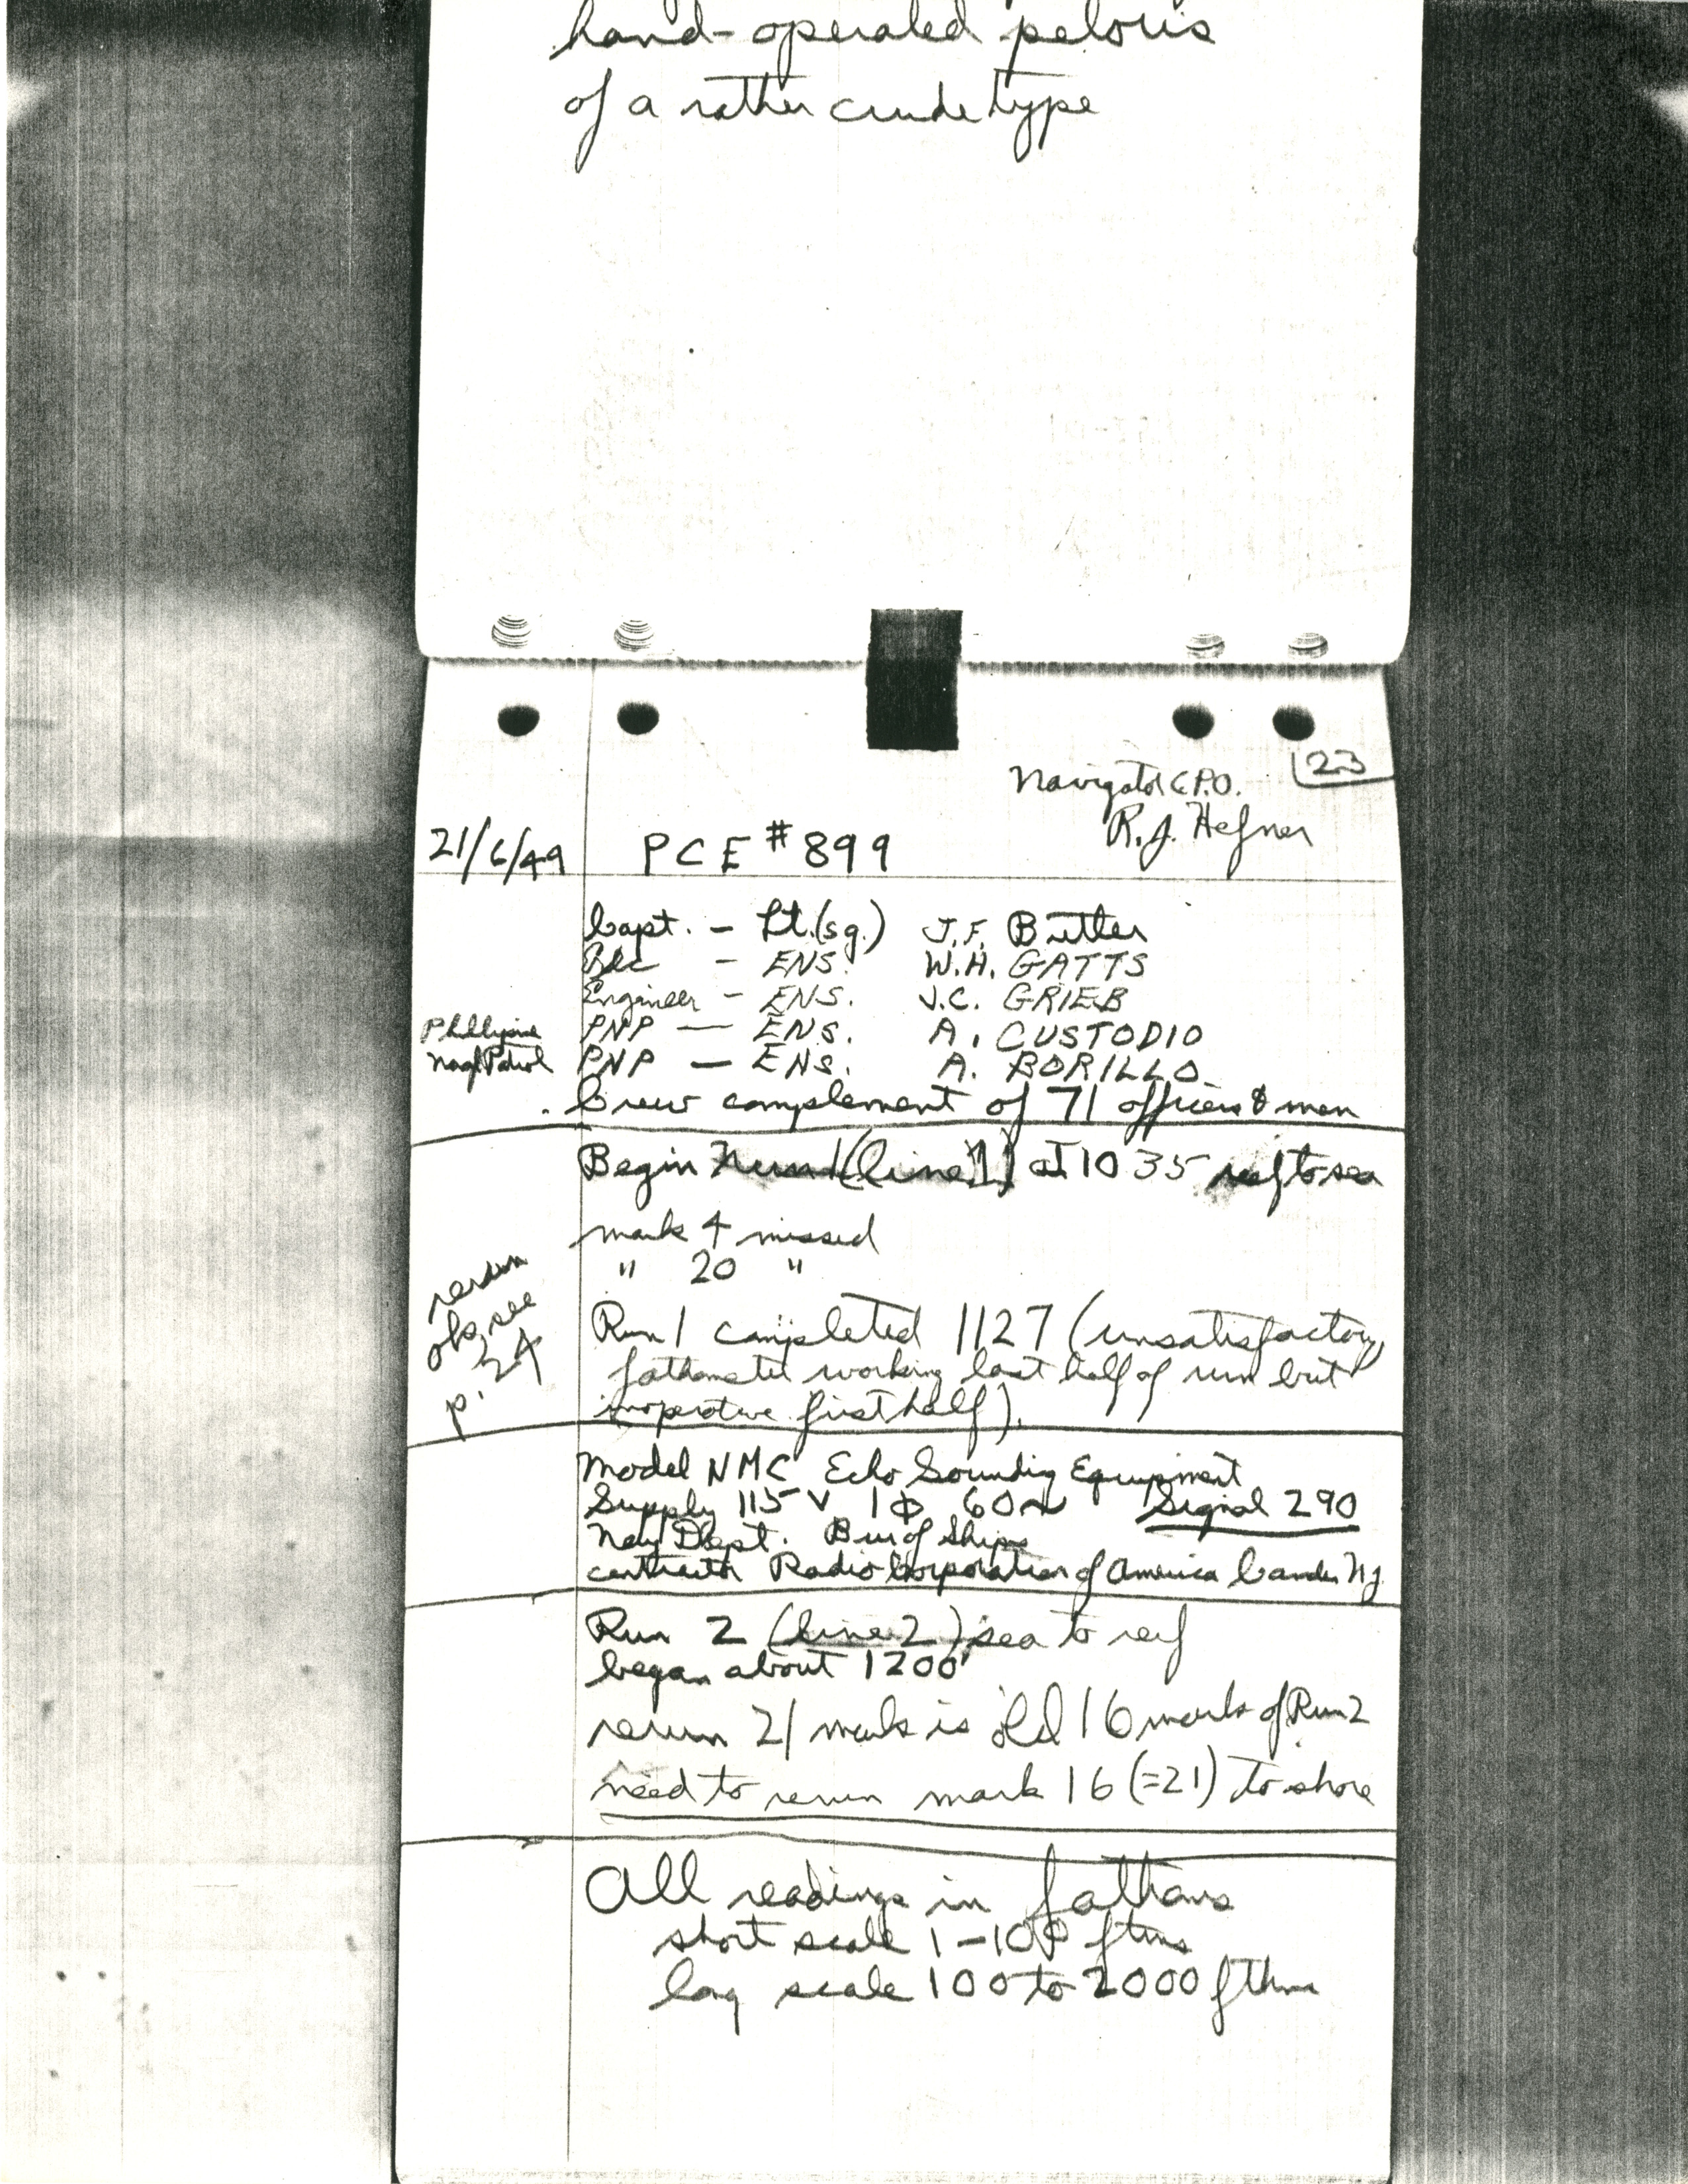 hand-operated peloris
of a rather crude type
23
Navigator C.P.O.
R.J. Hefner
21/6/49 PCE #899
Capt. - Lt.(sg.) J.F. Butler
- ENS. W.H. GATTS
Engineer - ENS. J.C. GRIEB
Phillipine PNP — ENS. A. CUSTODIO
Patrol PNP — ENS. A. BORILLO
Crew complement of 71 officers & men
Begin Run 1 (line 1) at 1035 reef to sea
mark 4 missed
" 20 "
rerun
obs, see
p. 24
Run 1 completed 1127 (unsatisfactory,
fathometer working last half of run but
inoperative first half).
Model NMC Echo Sounding Equipment
Supply 115 V 1 φ 60~ Signal 290
Navy Dept. Bur of Ships
contractor Radio Corporation of America Camden NJ.
Run 2 (line 2) sea to reef
began about 1200
rerun 21 mark is old 16 mark of Run 2
need to rerun mark 16 (=21) to shore
All readings in fathoms
short scale 1-100 fthms
long scale 100 to 2000 fthms